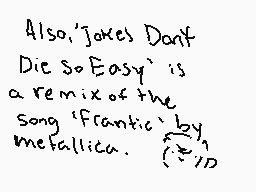 Also, 'Jokes Don't
Die So Easy' is
a remix of the
song 'Frantic' by
metallica.